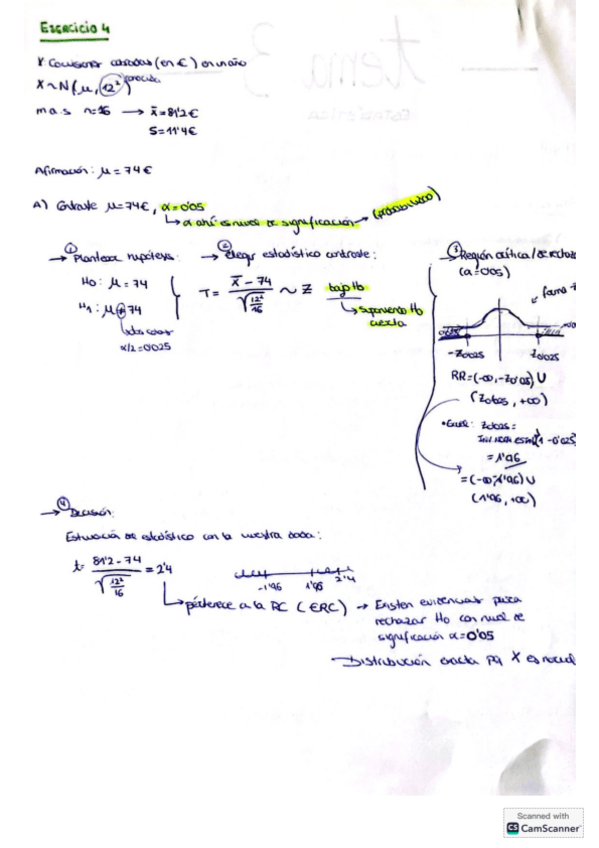 Ejercicio 4
X: Comisiones cobradas (en €) en un año
X ~ N(μ, 12²) conocida
m.a.s n=16 → x̄ = 81'2€
S = 11'4€
Afirmación: μ = 74€
A) Contraste μ=74€, α=0'05
↳ α ahí es nivel de significación
→ ① Plantear hipótesis:
H₀: μ = 74
H₁: μ ≠ 74
α/2 = 0'025
→ ② Elegir estadístico contraste:
T = (x̄ - 74) / √(12²/16) ~ Z bajo H₀
↳ suponiendo H₀ cierta
→ ③ Región crítica / de rechazo
(α=0'05)
forma
-Z0'025 Z0'025
RR = (-∞, -Z0'025) ∪
(Z0'025, +∞)
• Excel: Z0'025 =
(1 - 0'025)
= 1'96
= (-∞, -1'96) ∪
(1'96, +∞)
→ ④ Decisión:
Estimación de estadístico con la muestra dada:
t = (81'2 - 74) / √(12²/16) = 2'4
-1'96 1'96 2'4
↳ pertenece a la RC (∈RC) → Existen evidencias para
rechazar H₀ con nivel de
significación α=0'05
Distribución exacta pq X es normal
Scanned with
CS CamScanner